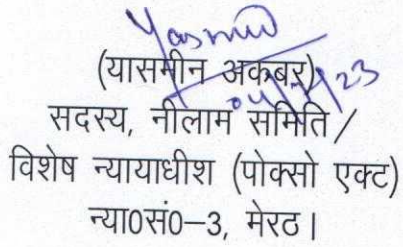 Yasmin
(यासमीन अकबर)
04/7/23
सदस्य, नीलाम समिति/
विशेष न्यायाधीश (पोक्सो एक्ट)
न्या0सं0-3, मेरठ।